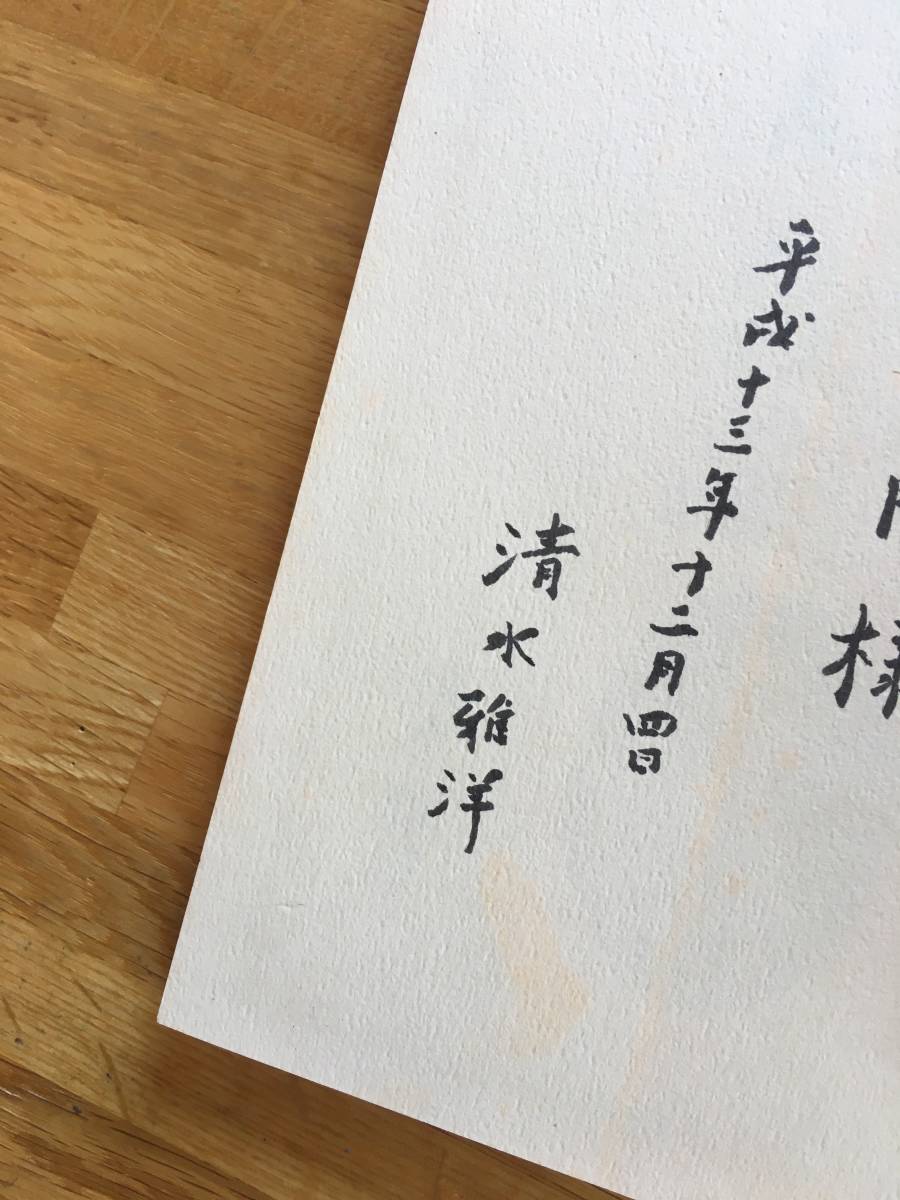 様
平成十三年十二月四日
清水雅洋